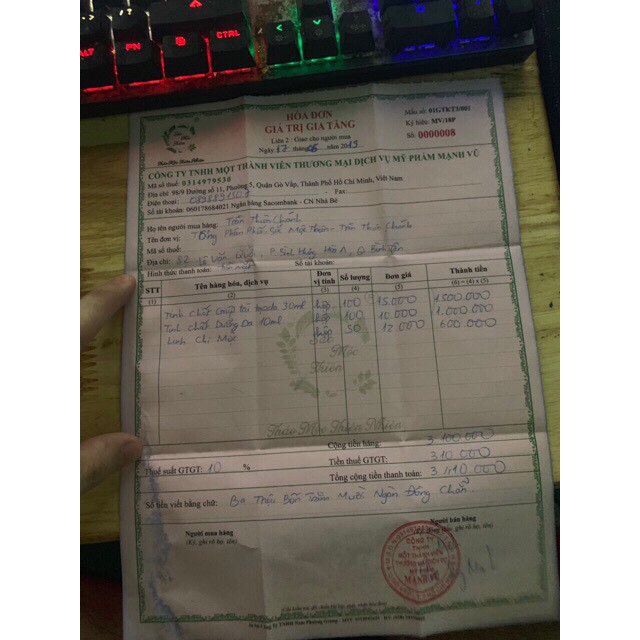 ALT
FN
CTRL
HÓA ĐƠN
GIÁ TRỊ GIA TĂNG
Liên 2 : Giao cho người mua
Ngày 17 tháng 05 năm 2019
Mẫu số: 01GTKT3/001
Ký hiệu: MV/18P
Số: 0000008
CÔNG TY TNHH MỘT THÀNH VIÊN THƯƠNG MẠI DỊCH VỤ MỸ PHẨM MẠNH VŨ
Mã số thuế: 0314979530
Địa chỉ: 98/9 Đường số 11, Phường 5, Quận Gò Vấp, Thành Phố Hồ Chí Minh, Việt Nam
Điện thoại: - Fax:
Số tài khoản: 060178684021 Ngân hàng Sacombank - CN Nhà Bè
Họ tên người mua hàng: Trần Thừa Chánh
Tên đơn vị: Tổng Phân Phối Sỉ Mộc Thiên - Trần Thừa Chánh
Mã số thuế:
Địa chỉ: 82 Lê Văn Quới P. Bình Hưng Hòa A, Q. Bình Tân
Hình thức thanh toán: Tiền mặt Số tài khoản:
STT Tên hàng hóa, dịch vụ Đơn vị tính Số lượng Đơn giá Thành tiền
(1) (2) (3) (4) (5) (6) = (4) x (5)
Tinh Chất 30ml hộp 100 15.000 1.500.000
Tinh Chất Dưỡng Da 10ml hộp 100 10.000 1.000.000
Linh Chi Mộc 50 12.000 600.000
Mộc
Thiên
Thảo Mộc Thiên Nhiên
Cộng tiền hàng: 3.100.000
Thuế suất GTGT: 10 % Tiền thuế GTGT: 310.000
Tổng cộng tiền thanh toán: 3.410.000
Số tiền viết bằng chữ: Ba Triệu Bốn Trăm Mười Ngàn Đồng Chẵn
Người mua hàng Người bán hàng
(Ký, ghi rõ họ, tên)
CÔNG TY
TNHH
MỘT THÀNH VIÊN
MỸ PHẨM
MẠNH VŨ